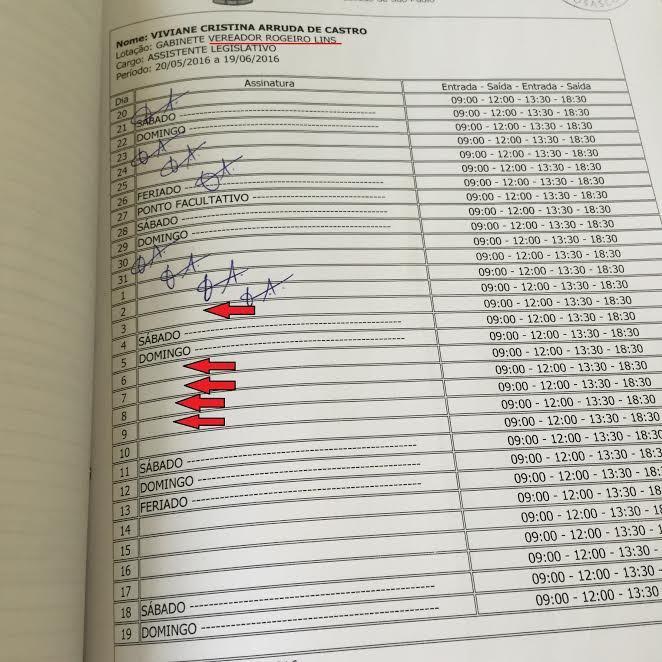 São Paulo
OSASCO
Nome: VIVIANE CRISTINA ARRUDA DE CASTRO
Lotação: GABINETE VEREADOR ROGEIRO LINS
Cargo: ASSISTENTE LEGISLATIVO
Período: 20/05/2016 a 19/06/2016
Dia Assinatura Entrada - Saída - Entrada - Saída
20 09:00 - 12:00 - 13:30 - 18:30
21 SÁBADO 09:00 - 12:00 - 13:30 - 18:30
22 DOMINGO 09:00 - 12:00 - 13:30 - 18:30
23 09:00 - 12:00 - 13:30 - 18:30
24 09:00 - 12:00 - 13:30 - 18:30
25 09:00 - 12:00 - 13:30 - 18:30
26 FERIADO 09:00 - 12:00 - 13:30 - 18:30
27 PONTO FACULTATIVO 09:00 - 12:00 - 13:30 - 18:30
28 SÁBADO 09:00 - 12:00 - 13:30 - 18:30
29 DOMINGO 09:00 - 12:00 - 13:30 - 18:30
30 09:00 - 12:00 - 13:30 - 18:30
31 09:00 - 12:00 - 13:30 - 18:30
1 09:00 - 12:00 - 13:30 - 18:30
2 09:00 - 12:00 - 13:30 - 18:30
3 09:00 - 12:00 - 13:30 - 18:30
4 SÁBADO 09:00 - 12:00 - 13:30 - 18:30
5 DOMINGO 09:00 - 12:00 - 13:30 - 18:30
6 09:00 - 12:00 - 13:30 - 18:30
7 09:00 - 12:00 - 13:30 - 18:30
8 09:00 - 12:00 - 13:30 - 18:30
9 09:00 - 12:00 - 13:30 - 18:30
10 09:00 - 12:00 - 13:30 - 18:30
11 SÁBADO 09:00 - 12:00 - 13:30 - 18:30
12 DOMINGO 09:00 - 12:00 - 13:30 - 18:30
13 FERIADO 09:00 - 12:00 - 13:30 - 18:3
14 09:00 - 12:00 - 13:30 - 18:3
15 09:00 - 12:00 - 13:30 - 18:
16 09:00 - 12:00 - 13:30 - 18
17 09:00 - 12:00 - 13:30 - 1
18 SÁBADO 09:00 - 12:00 - 13:30 -
19 DOMINGO 09:00 - 12:00 - 13:30 -